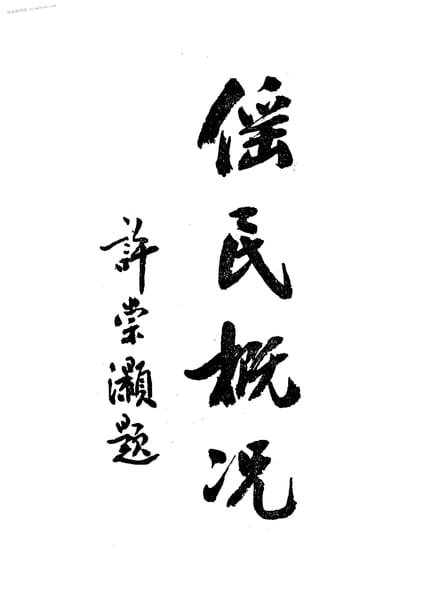 傜民概况
許崇灝題